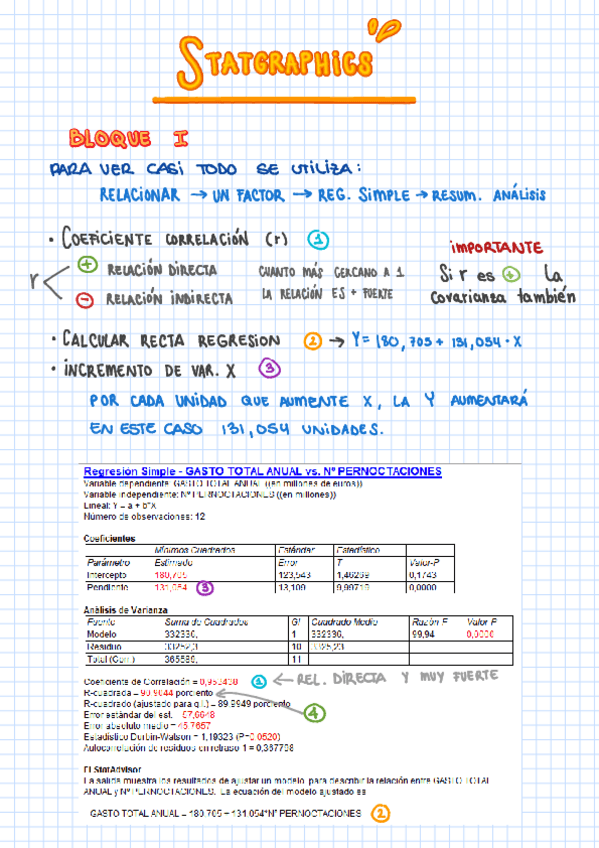 STATGRAPHICS
BLOQUE I
PARA VER CASI TODO SE UTILIZA:
RELACIONAR → UN FACTOR → REG. SIMPLE → RESUM. ANÁLISIS
• COEFICIENTE CORRELACIÓN (r) 1
r
+ RELACIÓN DIRECTA
- RELACIÓN INDIRECTA
CUANTO MÁS CERCANO A 1
LA RELACIÓN ES + FUERTE
IMPORTANTE
Si r es + la
covarianza también
• CALCULAR RECTA REGRESION 2 → Y= 180,705 + 131,054 · X
• INCREMENTO DE VAR. X 3
POR CADA UNIDAD QUE AUMENTE X, LA Y AUMENTARÁ
EN ESTE CASO 131,054 UNIDADES.
Regresión Simple - GASTO TOTAL ANUAL vs. Nº PERNOCTACIONES
Variable dependiente: GASTO TOTAL ANUAL ((en millones de euros))
Variable independiente: Nº PERNOCTACIONES ((en millones))
Lineal: Y = a + b*X
Número de observaciones: 12
Coeficientes
Mínimos Cuadrados Estándar Estadístico
Parámetro Estimado Error T Valor-P
Intercepto 180,705 123,543 1,46269 0,1743
Pendiente 131,054 3 13,109 9,99719 0,0000
Análisis de Varianza
Fuente Suma de Cuadrados Gl Cuadrado Medio Razón-F Valor-P
Modelo 332336, 1 332336, 99,94 0,0000
Residuo 33252,3 10 3325,23
Total (Corr.) 365589, 11
Coeficiente de Correlación = 0,953438 1 ← REL. DIRECTA Y MUY FUERTE
R-cuadrada = 90,9044 porciento
R-cuadrado (ajustado para g.l.) = 89,9949 porciento 4
Error estándar del est. = 57,6648
Error absoluto medio = 45,7657
Estadístico Durbin-Watson = 1,19323 (P=0,0520)
Autocorrelación de residuos en retraso 1 =
El StatAdvisor
La salida muestra los resultados de ajustar un modelo para describir la relación entre GASTO TOTAL
ANUAL y Nº PERNOCTACIONES. La ecuación del modelo ajustado es
GASTO TOTAL ANUAL = 180,705 + 131,054*Nº PERNOCTACIONES 2